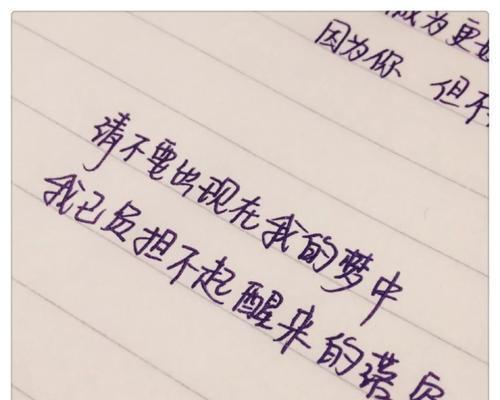 成为更
因为你 但不
请不要出现在我的梦中
我已负担不起醒来的落